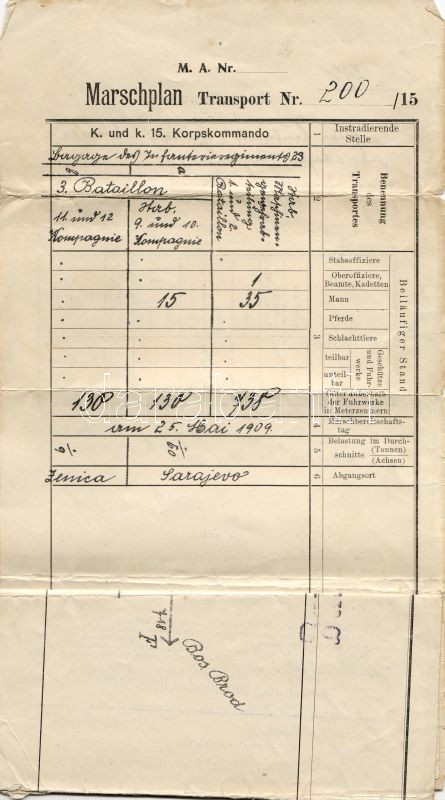 M. A. Nr.
Marschplan Transport Nr. 200 /15
K. und k. 15. Korpskommando
1 Instradierende Stelle
Bagage des Infanterieregiments 23
a
3. Bataillon
11. und 12. Kompagnie
Stab. 9. und 10. Kompagnie
Stab.
1. und 2. Bataillon
2 Benennung des Transportes
Stabsoffiziere
1 Oberoffiziere, Beamte, Kadetten
15 35 Mann
Pferde
3 Schlachttiere
teilbar
unteilbar
Geschütze und Fuhrwerke
Beiläufiger Stand
138 138 738
der Fuhrwerke in Meterzentnern
am 25. Mai 1909.
4 Marschbereitschaftstag
60
5 Belastung im Durchschnitte (Tonnen) (Achsen)
Zenica Sarajevo
6 Abgangsort
7·18
F
Bos Brod